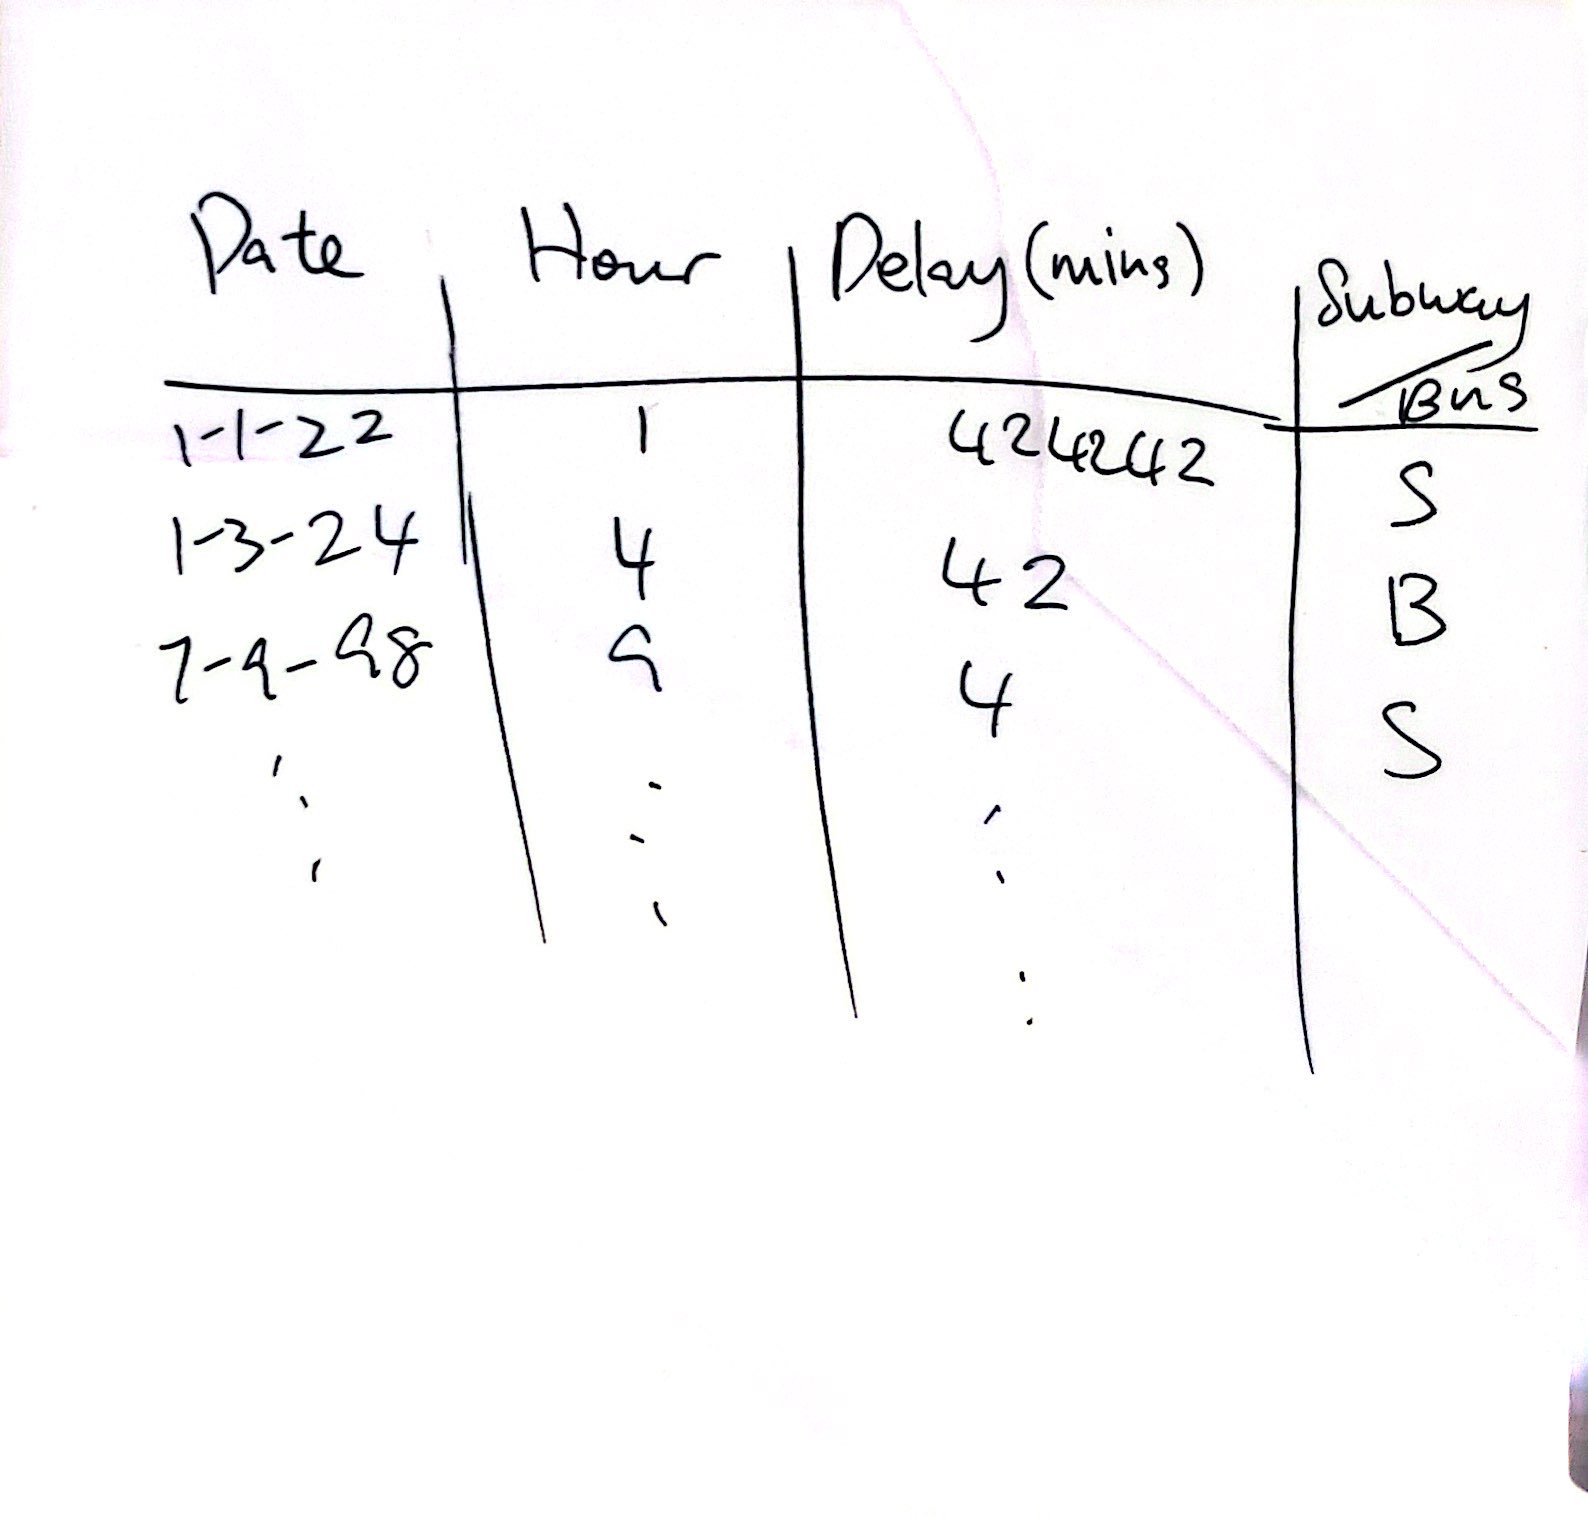 Date Hour Delay (mins) Subway
Bus
1-1-22 1 424242 S
1-3-24 4 42 B
7-9-98 9 4 S